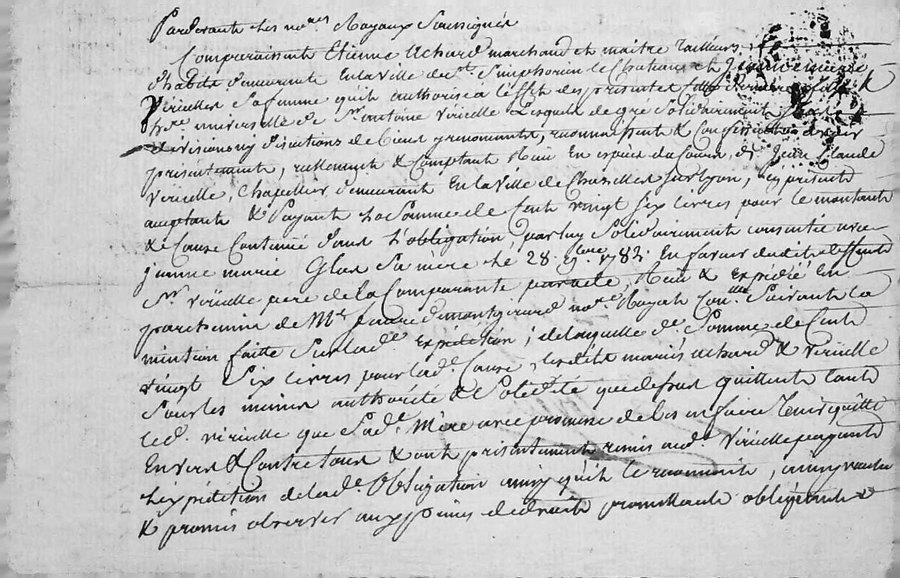 Pardevant les no.res Royaux Soussignés
Comparaissent Etienne Achard marchand et maitre Tailleurs
d'habits demeurants En la ville de St. Simphorien le Chateau et
Virieelle Sa femme qu'il authorise a l'effet des presentes
h.re universelle de Sr. antoine Virielle Lesquels de gré Solidairement
et divisions de biens y renonceants, reconnaissent & Confessent avoir
presentement, reellement & Comptant Reçu En especes du Cours, de Jean Claude
Virielle, Chapellier demeurant En la ville de Chazelles Sur lyon, cy present
acceptant & Payant La Somme de Cent vingt Six livres pour le montant
& Cause Contenüe dans L'obligation, par luy Solidairement consentie avec
jeanne marie Glas Sa mère Le 28. 9bre 1782. En faveur dudit
Sr. Virielle pere de la Comparante, Reçu & Expédié En
parchemin de Me. no.re Royal Suivant la
mention faitte Sur lad.e Expédition; de laquelle d.e Somme de Cent
vingt Six livres pour lad.e Cause, lesdits mariés achard & Virielle
Sous les mêmes authorité & Solid.té que dessus quittent tant
led. virielle que Sad.e Mère avec promesse de les en faire Tenir quitte
Envers & Contre tous & ont présentement remis aud. Virielle
L'expédition de lad.e Obligation ainsy qu'il le reconnoit, ainsy
& promis observer aux peines de droit promettants obligeants &